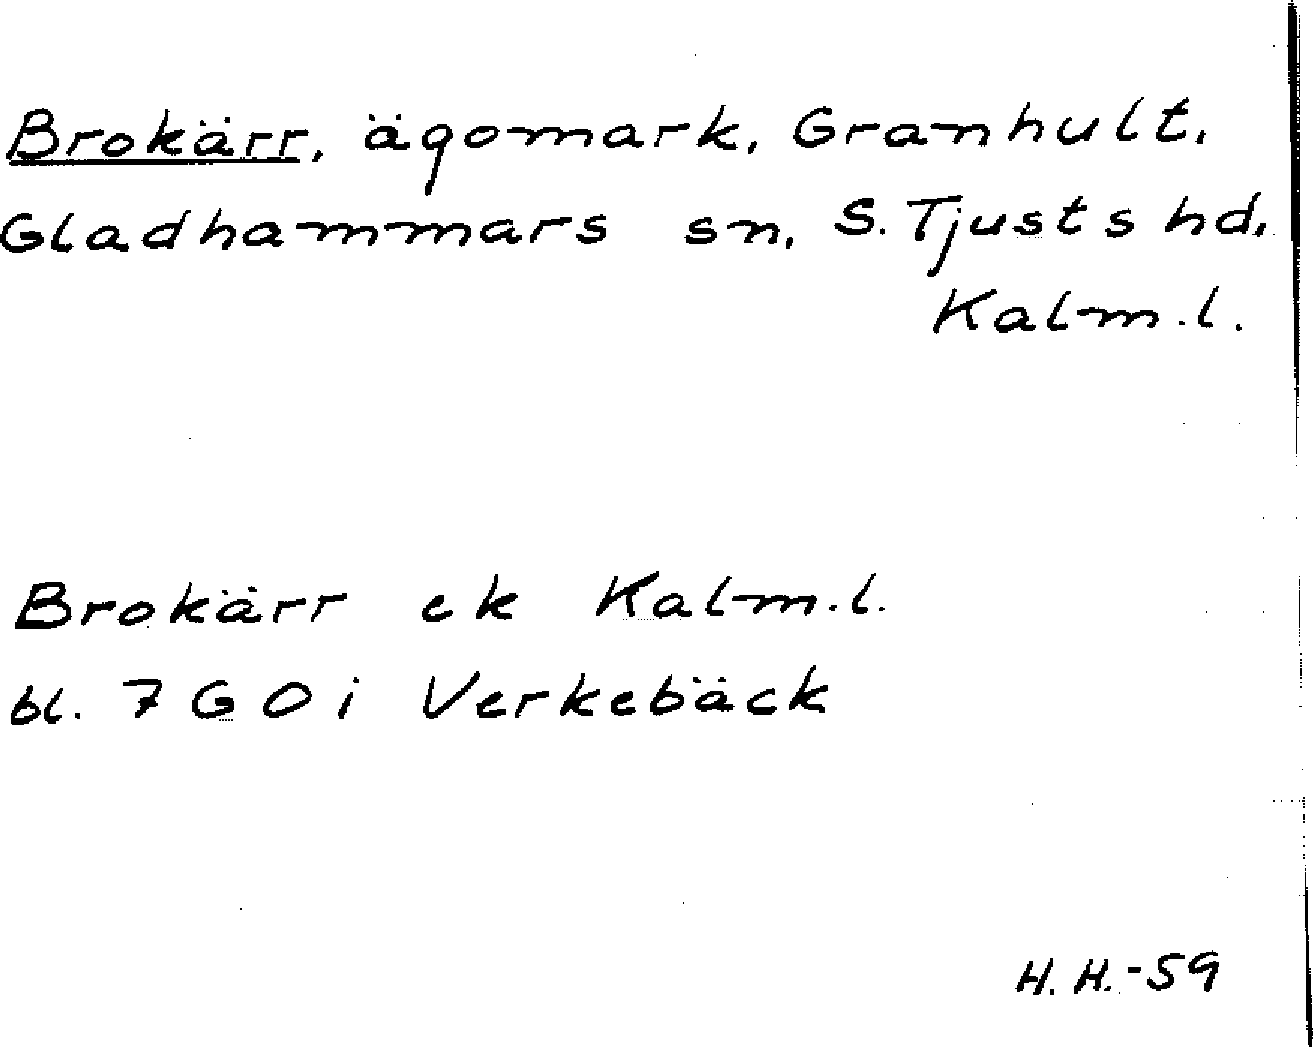 Brokärr, ägomark, Granhult,
Gladhammars sn, S. Tjusts hd,
Kalm.l.
Brokärr ek Kalm.l.
bl. 7 G O i Verkebäck
H. H. -59